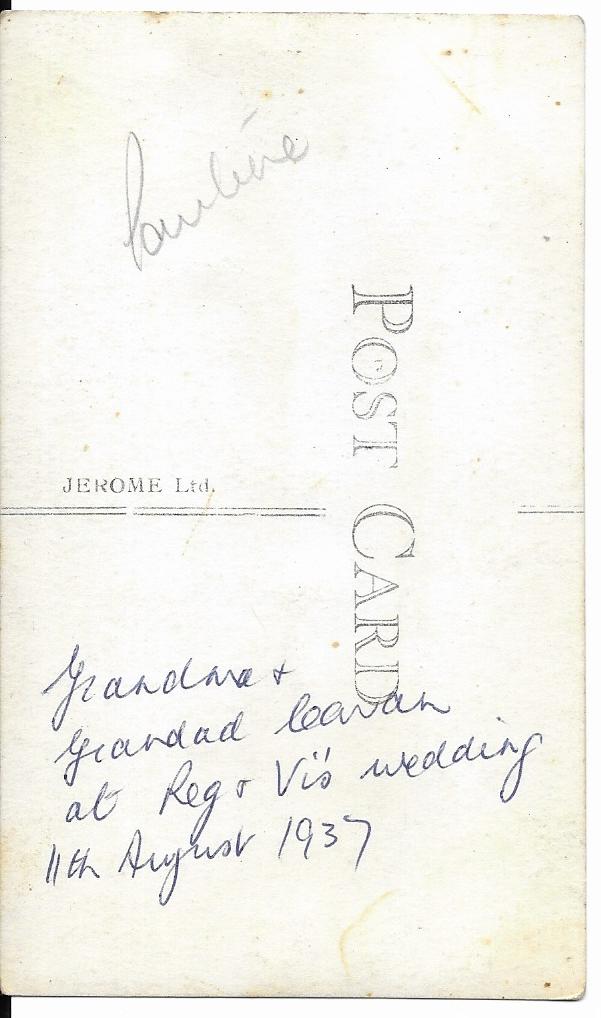 Pauline
POST CARD
JEROME Ltd.
Grandma &
Grandad Cavan
at Reg & Vi's wedding
11th August 1937